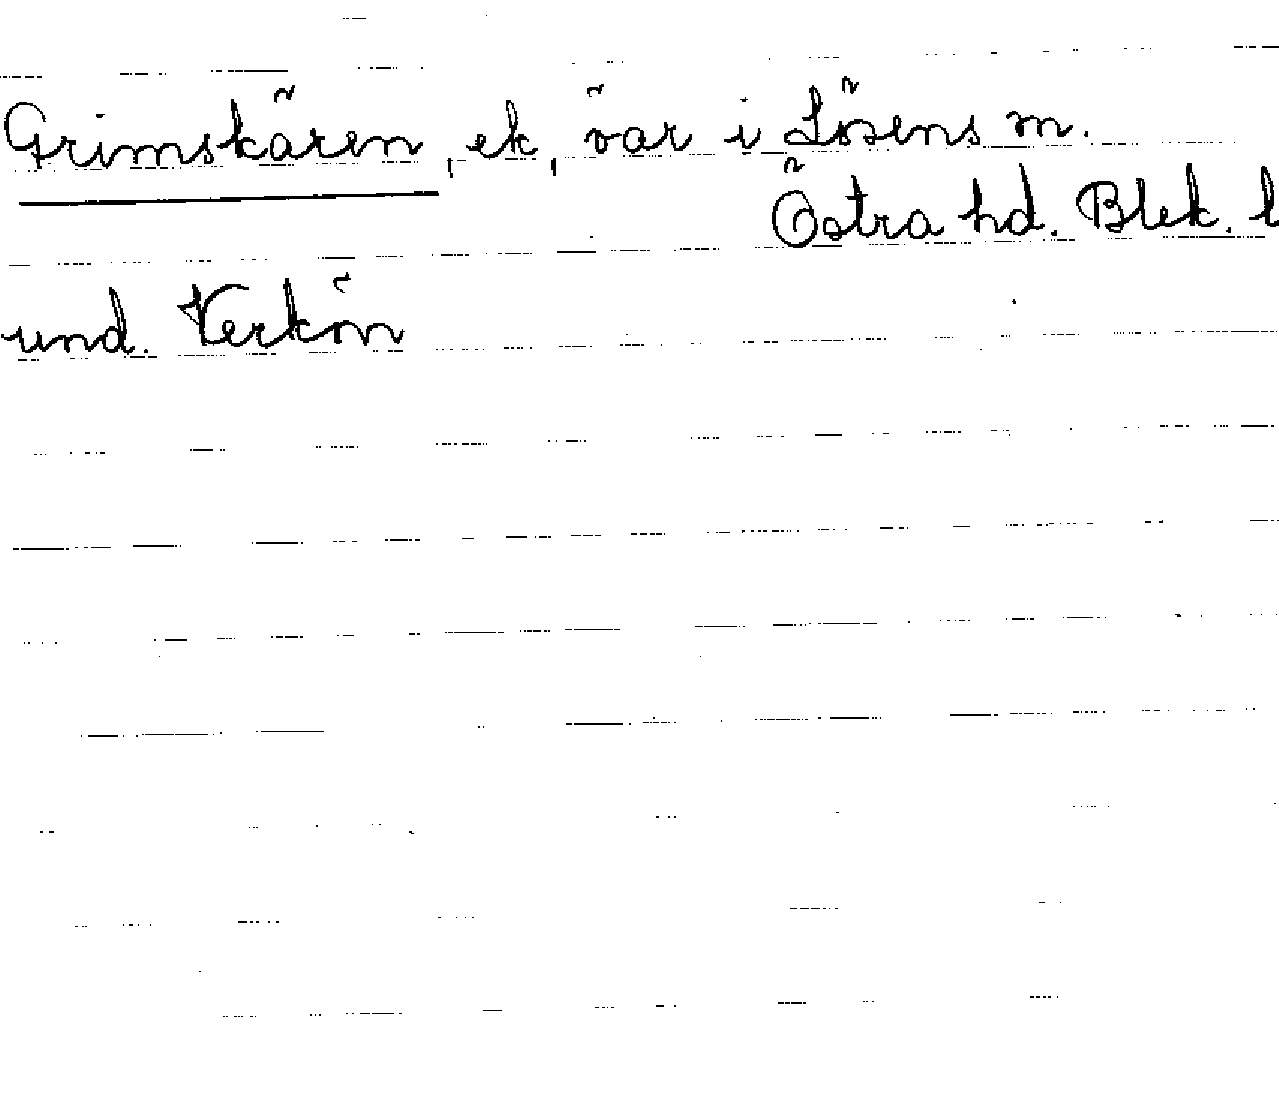 Grimskären, ek, övar i Lösens m.
Östra hd. Blek. l
und. Verkön